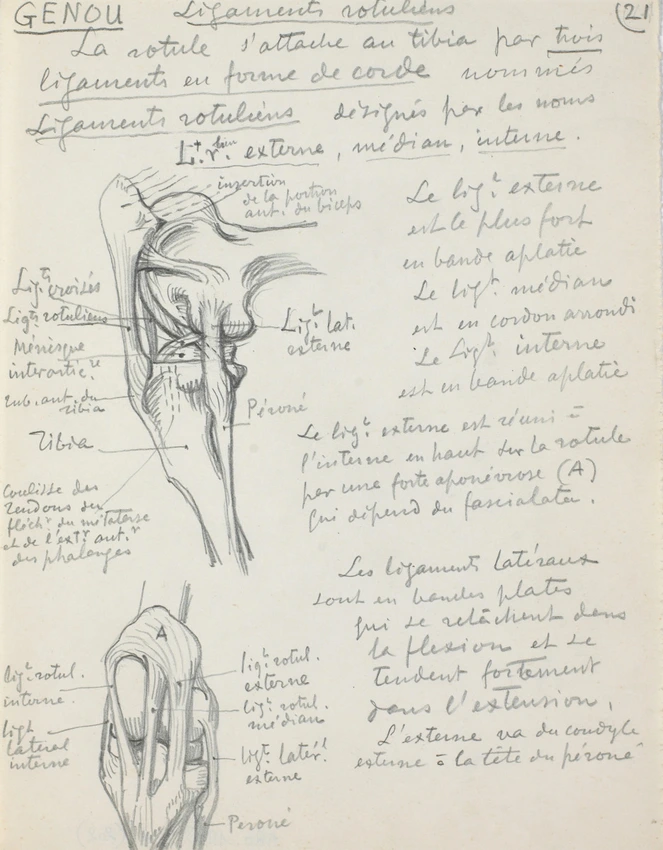 GENOU Ligaments rotuliens (21
La rotule s'attache au tibia par trois
ligaments en forme de corde nommés
Ligaments rotuliens désignés par les noms
Lt. rlien. externe, médian, interne.
insertion
de la portion
ant. du biceps
Le ligt externe
est le plus fort
en bande aplatie
Le ligt. médian
est en cordon arrondi
Le Ligt. interne
est en bande aplatie
Ligts croisés
Ligts rotuliens
Ménisque
interartic.re
tub. ant. du
tibia
Tibia
Coulisse des
tendons du
fléchr. du métatarse
et de l'extr. ant.r
des phalanges
Ligt. lat.
externe
Péroné
Le ligt. externe est réuni à
l'interne en haut sur la rotule
par une forte aponévrose (A)
qui dépend du fascialata.
Les ligaments latéraux
sont en bandes plates
qui se relâchent dans
la flexion et se
tendent fortement
dans l'extension,
L'externe va du condyle
externe à la tête du péroné
A
ligt. rotul.
interne.
ligt
latéral
interne
ligt. rotul.
externe
ligt. rotul.
médian
ligt. latérl
externe
Peroné